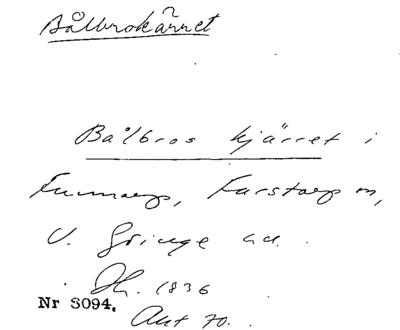 Bålbrokärret
Bålbros kjärret i
Fumarp, Farstorps sn,
V. Göinge hd.
Dh. 1836
Nr 3094.
Akt 70.